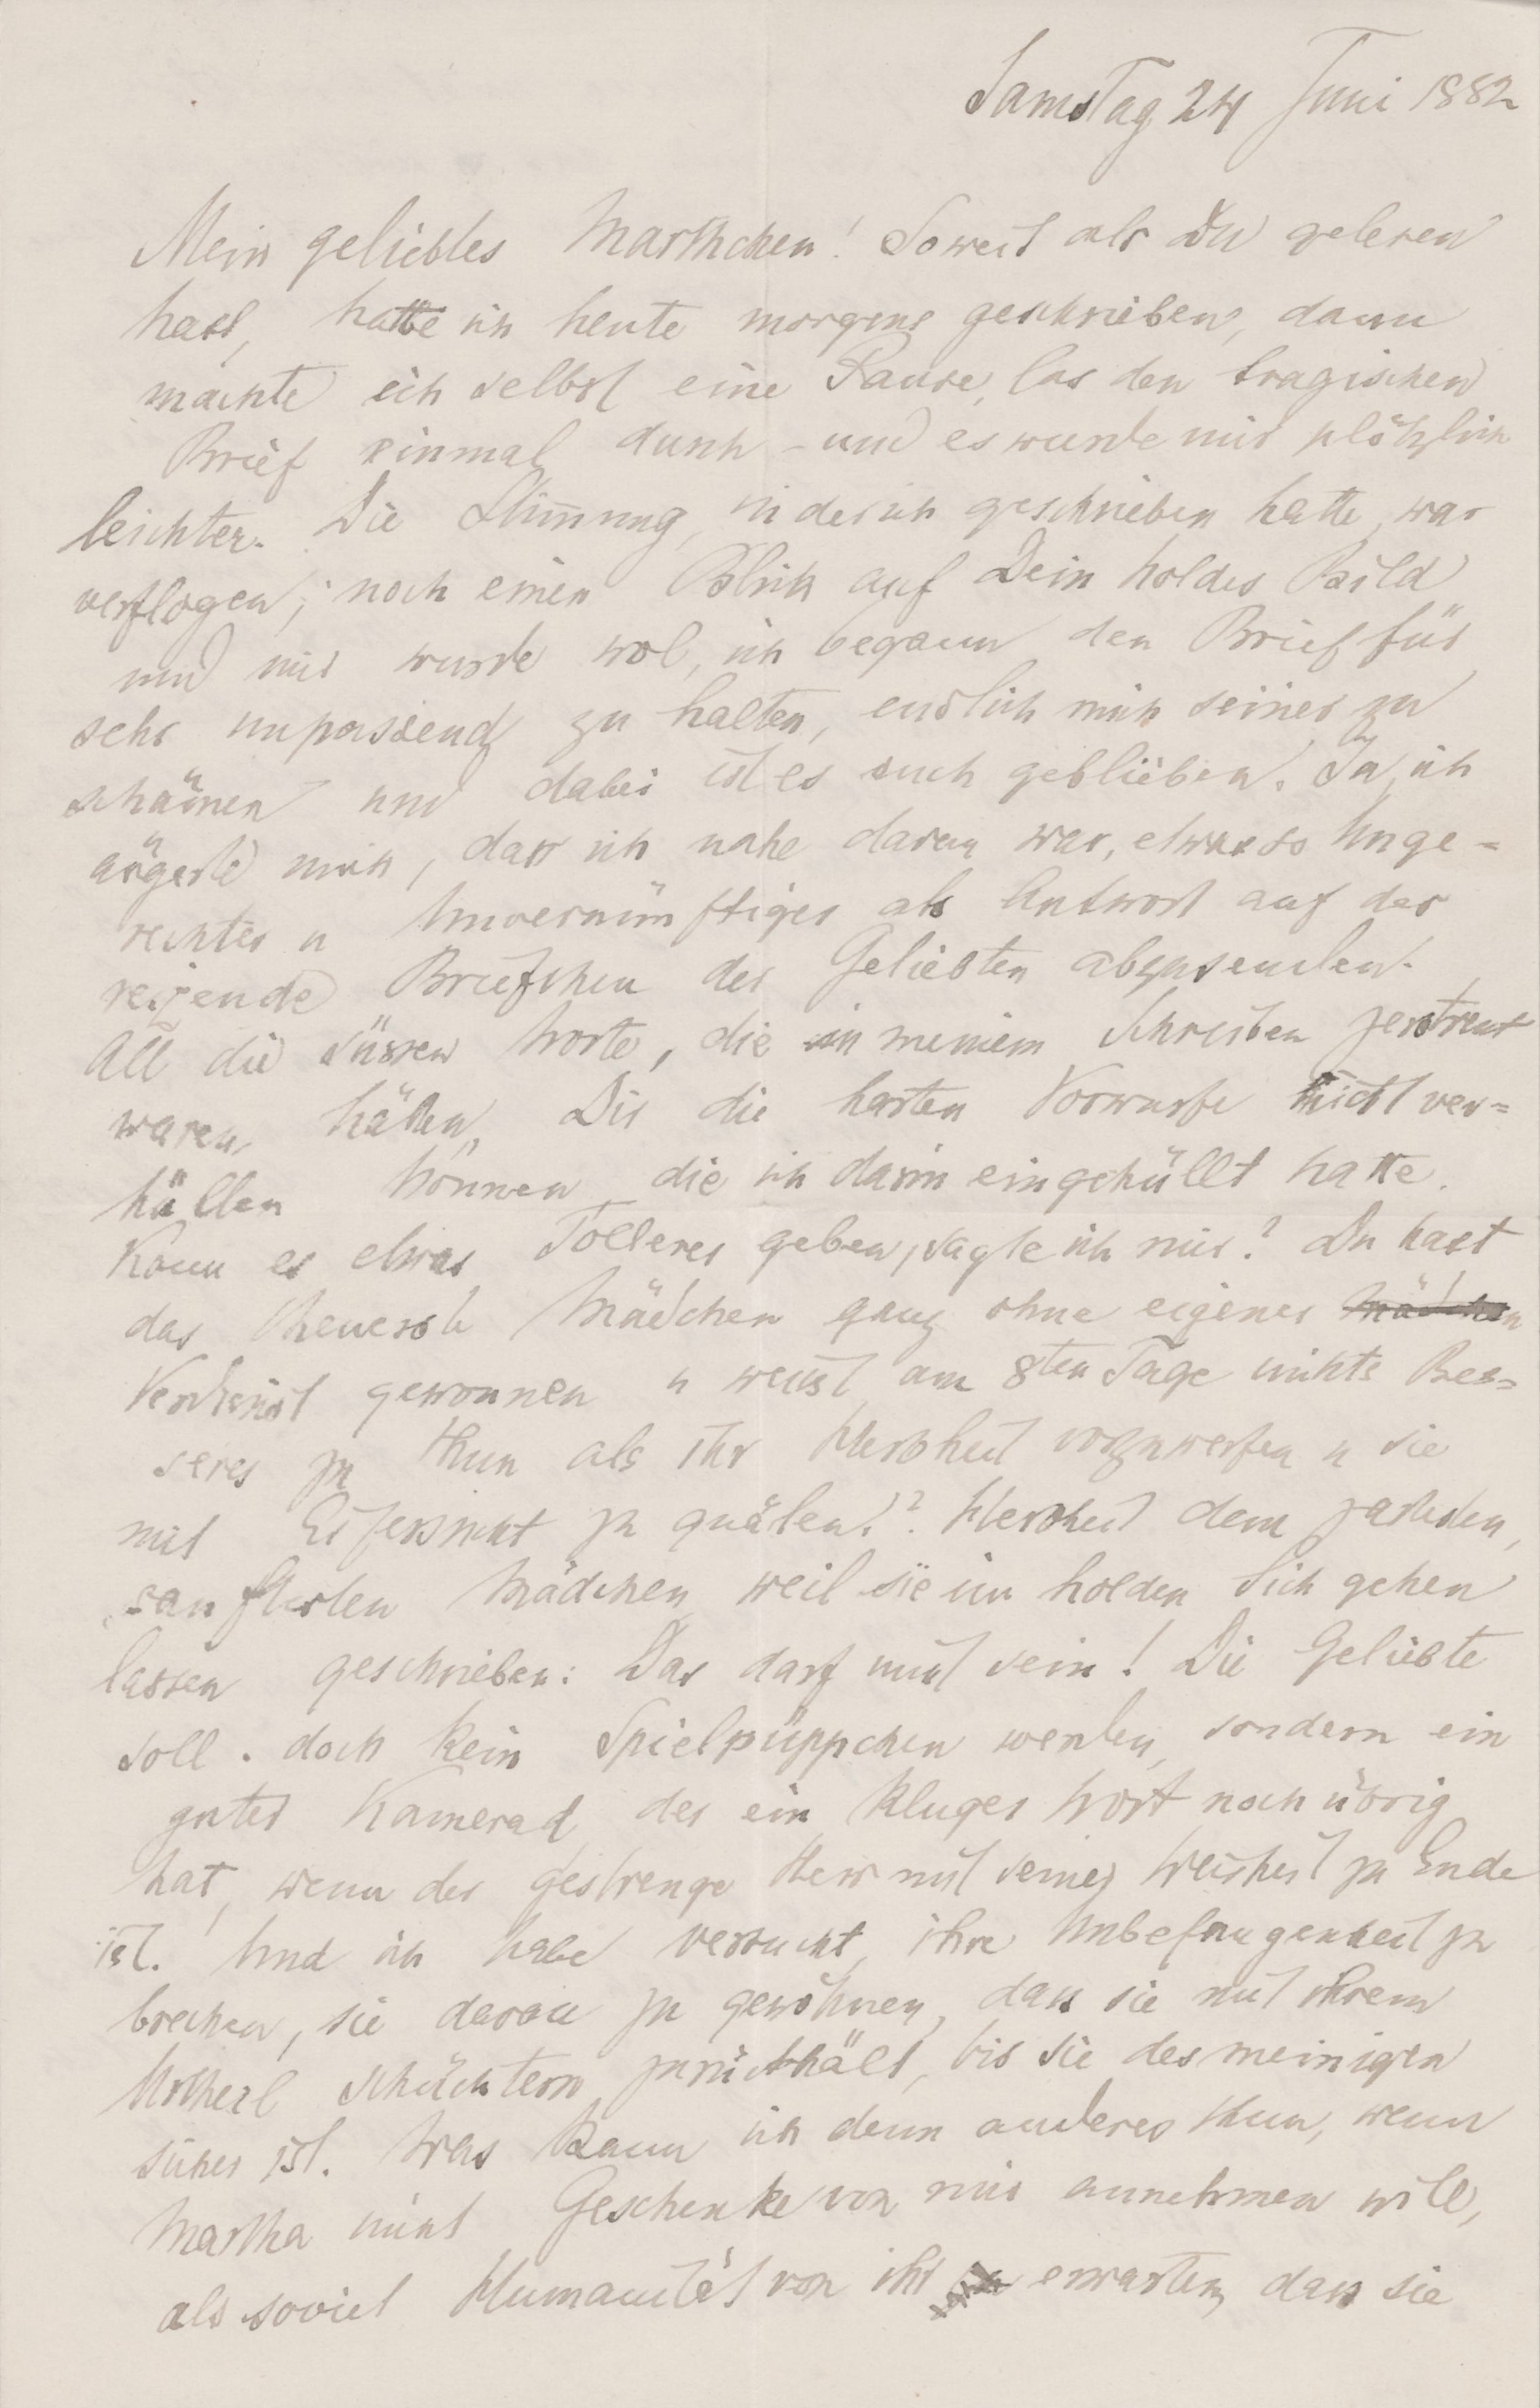 Samstag 24 Juni 1882
Mein geliebtes Marthchen! Soweit als Du gelesen
hast, hatte ich heute morgens geschrieben, dann
machte ich selbst eine Pause, las den tragischen
Brief einmal durch – und es wurde mir plötzlich
leichter. Die Stimmung, in der ich geschrieben hatte, war
verflogen; noch einen Blick auf Dein holdes Bild
und mir wurde wol, ich begann den Brief für
sehr unpassend zu halten, endlich mich seiner zu
schämen und dabei ist es auch geblieben. Ja, ich
ärgerte mich, dass ich nahe daran war, etwas so Unge=
rechtes u Unvernünftiges als Antwort auf das
reizende Briefchen der Geliebten abzusenden.
All die süssen Worte, die in meinem Schreiben zerstreut
waren, hätten Dir die harten Vorwürfe nicht ver=
hüllen können, die ich darin eingehüllt hatte.
Kann es etwas Tolleres geben, sagte ich mir? Du hast
das theuerste Mädchen ganz ohne eigenes Mädchen
Verdienst gewonnen u weisst am 8ten Tage nichts Bes=
seres zu thun als ihr Herbheit vorzuwerfen u sie
mit Eifersucht zu quälen!? Herbheit dem zartesten,
sanftesten Mädchen, weil sie im holden Sich gehen
lassen geschrieben: Das darf nicht sein! Die Geliebte
soll doch kein Spielpüppchen werden, sondern ein
guter Kamerad, der ein kluges Wort noch übrig
hat, wenn der gestrenge Herr mit seiner Weisheit zu Ende
ist. Und ich habe versucht, ihre Unbefangenheit zu
brechen, sie daran zu gewöhnen, dass sie mit ihrem
Urtheil schüchtern zurückhält, bis sie des meinigen
sicher ist. Was kann ich denn anderes thun, wenn
Martha nicht Geschenke von mir annehmen will,
als soviel Humanität von ihr erwarten, dass sie